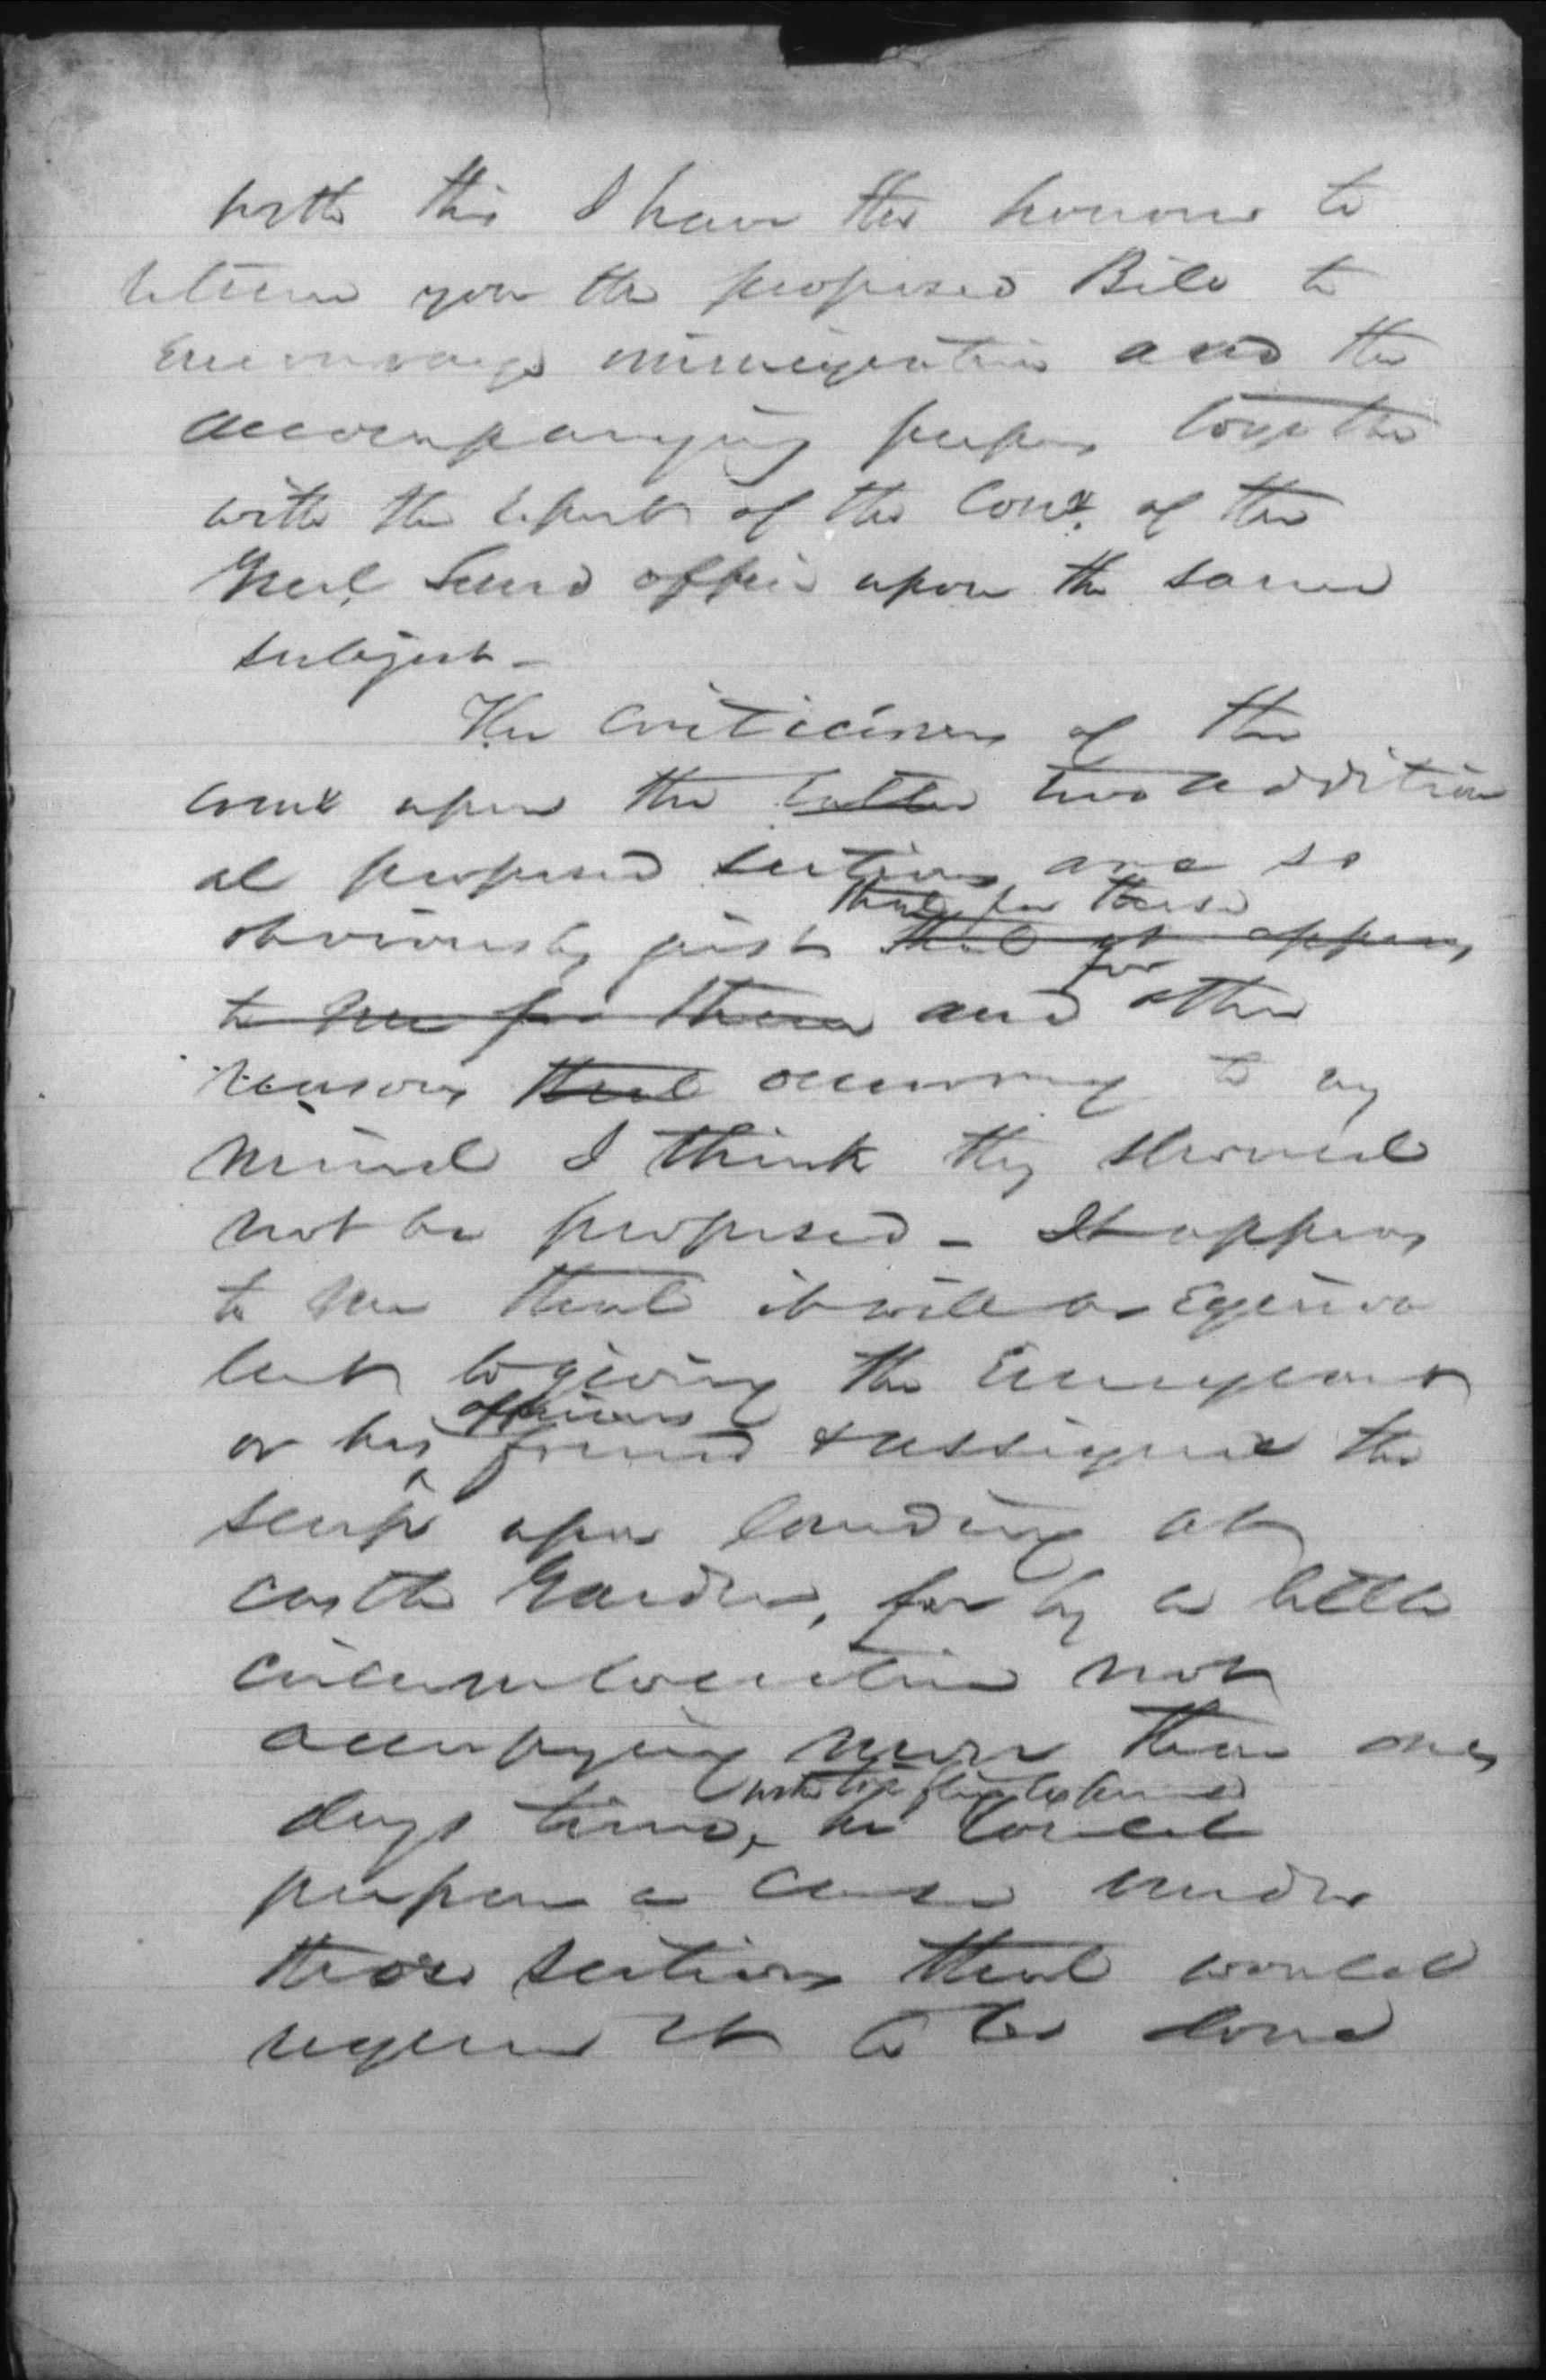 With this I have the honour to
return you the proposed Bill to
encourage immigration and the
accompanying papers together
with the report of the Comr. of the
Genl. Land office upon the same
subject -
The criticisms of the
comr upon the latter two addition
al proposed sections are so
that for these
obviously just that it appears
for
to me for these and other
reasons that occurring to my
mind I think they should
not be proposed - It appears
to me that it will be equiva
lent to giving the Emigrant
or his friend & assignee the
scrip upon landing at
castle Garden, for by a little
circumlocution not
occupying more than one
days time, he could
prepare a case under
those sections that would
require it to be done